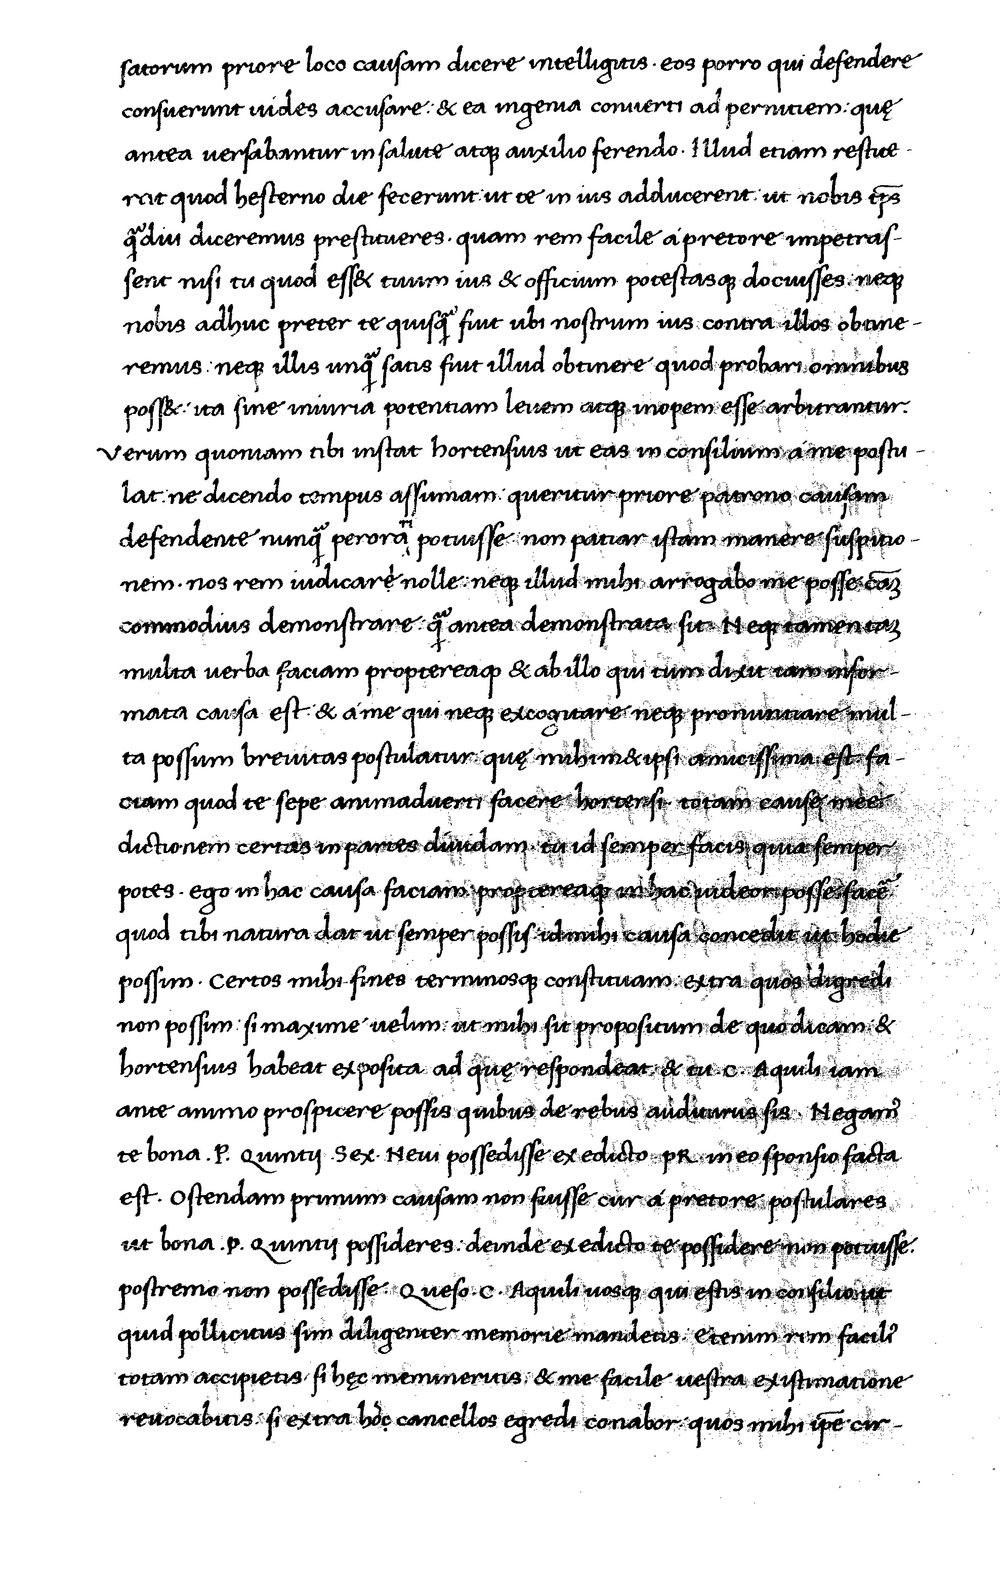 satorum priore loco causam dicere intelligitis · eos porro qui defendere
consuerunt uides accusare : & ea ingenia conuerti ad pernitiem : quę
antea uersabantur in salute atq; auxilio ferendo · Illud etiam restite-
rat quod hesterno die fecerunt : ut te in ius adducerent : ut nobis tp̄s
q̄diu diceremus prestitueres · quam rem facile a pretore impetras-
sent nisi tu quod ess& tuum ius & officium potestasq; docuisses : neq;
nobis adhuc preter te quisq̄ fuit ubi nostrum ius contra illos obtine-
remus : neq; illis unq̄ satis fuit illud obtinere quod probari omnibus
poss& : ita sine iniuria potentiam leuem atq; inopem esse arbitrantur.
Verum quoniam tibi instat hortensius ut eas in consilium a me postu-
lat : ne dicendo tempus assumam : queritur priore patrono causam
defendente nunq̄ perorari potuisse : non patiar istam manere suspitio-
nem · nos rem iudicare nolle : neq; illud mihi arrogabo me posse cāꝫ
commodius demonstrare : q̄ antea demonstrata sit · Neq; tamen taꝫ
multa uerba faciam proptereaq & ab illo qui tum dixit iam infor-
mata causa est : & a me qui neq; excogitare neq; pronuntiare mul-
ta possum breuitas postulatur : quę mihim& ipsi amicissima est : fa-
ciam quod te sepe animaduerti facere hortensi · totam causę meę
dictionem certas in partes diuidam · tu id semper facis quia semper
potes · ego in hac causa faciam : proptereaq; in hac uideor posse facē
quod tibi natura dat ut semper possis : id mihi causa concedit ut hodie
possim · Certos mihi fines terminosq; constituam : extra quos digredi
non possim : si maxime uelim : ut mihi sit propositum de quo dicam : &
hortensius habeat exposita ad quę respondeat : & tu C · Aquili iam
ante animo prospicere possis quibus de rebus auditurus sis · Negam᾽
te bona . P. Quintij Sex · Neui possedisse ex edicto · pR · in eo sponsio facta
est · Ostendam primum causam non fuisse cur a pretore postulares
ut bona .P. Quintij possideres : deinde ex edicto te possidere non potuisse.
postremo non possedisse · Queso · C · Aquili uosq; qui estis in consilio ut
quid pollicitus sim diligenter memorie mandetis · Etenim rem facili᾽
totam accipietis : si hęc memineritis · & me facile uestra existimatione
reuocabitis : si extra hoc cancellos egredi conabor : quos mihi ip̄e cir-